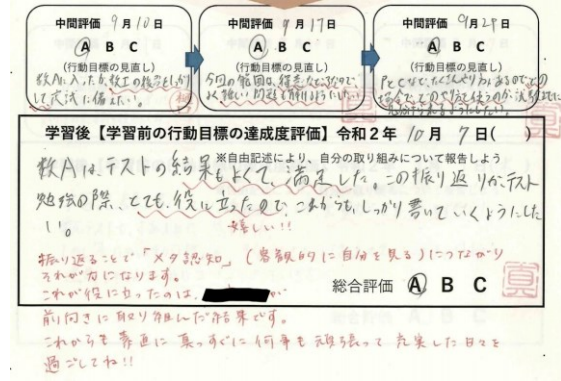 中間評価 9月10日
A B C
(行動目標の見直し)
数Aに入ったが、数Iの復習もしっかり
して定試に備えたい。
中間評価 9月17日
A B C
(行動目標の見直し)
今回の範囲は、得意なところなので
中間評価 9月28日
A B C
(行動目標の見直し)
PとCなど、たくさん
学習後【学習前の行動目標の達成度評価】令和2年10月7日( )
※自由記述により、自分の取り組みについて報告しよう
数Aは、テストの結果もよくて、満足した。この振り返りが、テスト
勉強の際、とても、役に立ったので、これからも、しっかり書いていくようにした
い。
嬉しい!!
振り返ることで「メタ認知」(客観的に自分を見る)につながり
それが力になります。
これが役に立ったのは、 が
総合評価 A B C
前向きに取り組んだ結果です。
これからも素直に真っすぐに何事も頑張って充実した日々を
過ごしてね!!